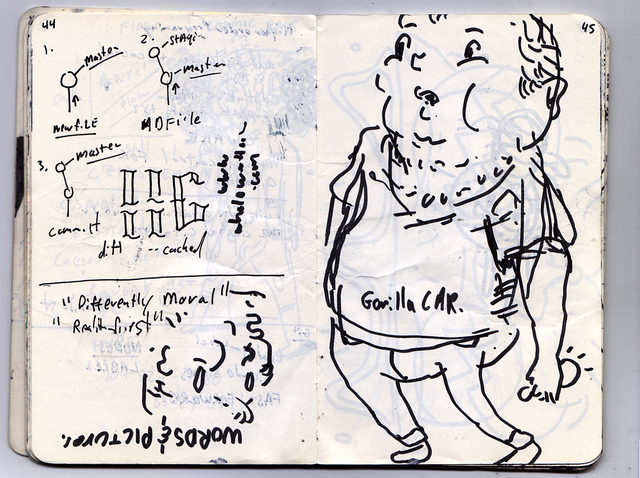 44
1.
master
newfile
2.
staging
master
ADFile
3.
master
commit
diff
--cached
www.
.com
"Differently Moral"
"Reality-first"
WORDS & PICTURES.
45
Gorilla CAR.